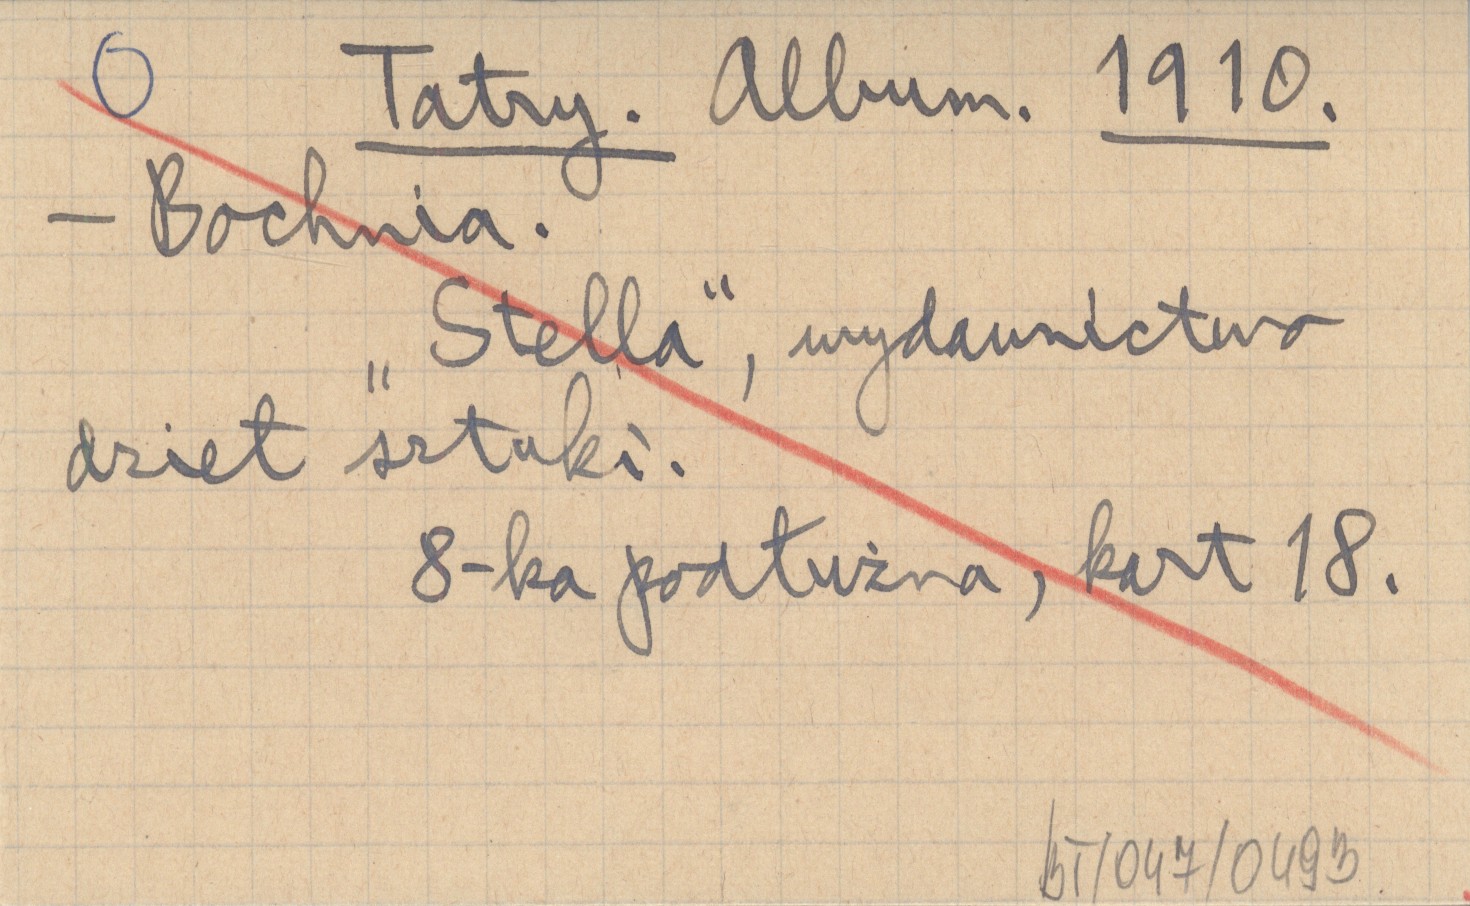 O Tatry. Album. 1910.
– Bochnia.
„Stella“, wydawnictwo
dzieł sztuki.
8-ka podłużna, kart 18.
BT/047/0493